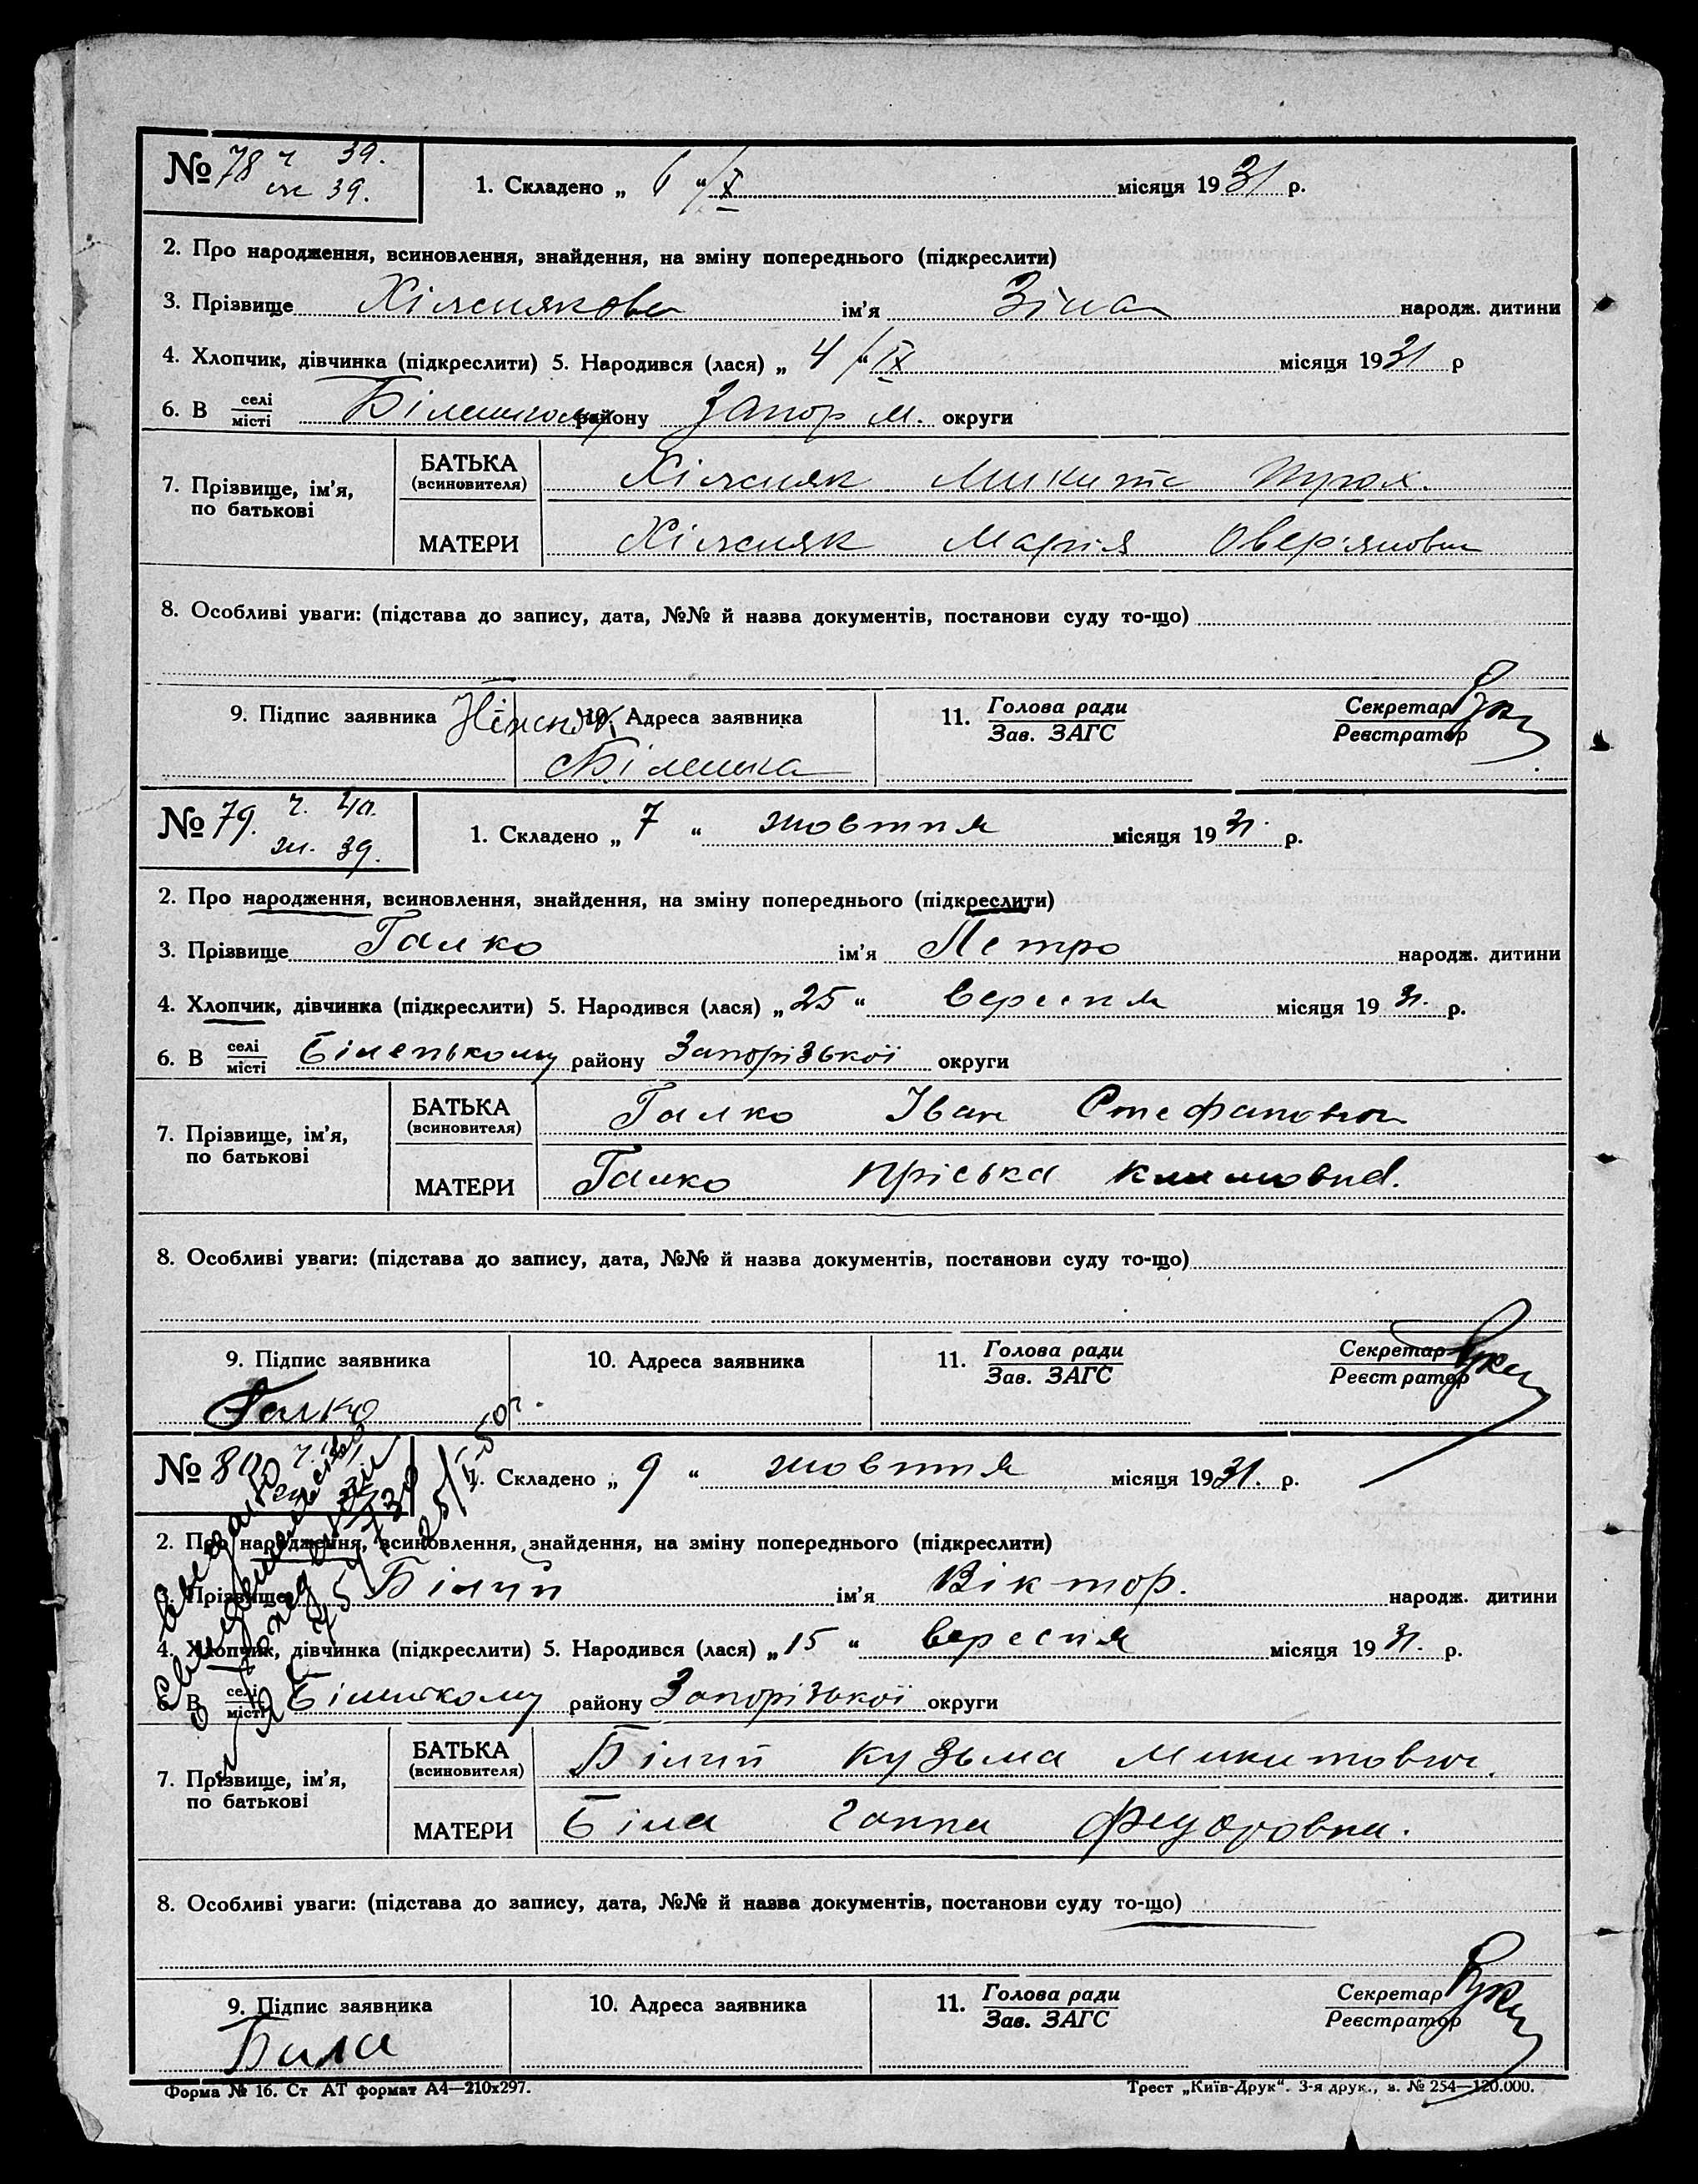 № 78 ч 39.
ж 39.
1. Складено „ 6 “ /X місяця 1931 р.
2. Про народження, всиновлення, знайдення, на зміну попереднього (підкреслити)
3. Прізвище ім'я Зіна народж. дитини
4. Хлопчик, дівчинка (підкреслити) 5. Народився (лася) „ 4 /“ IX місяця 1931 р
6. В селі місті Біленькому району Запор м. округи
7. Прізвище, ім'я, по батькові
БАТЬКА (всиновителя) Микита
МАТЕРИ Марія Овер'яновна
8. Особливі уваги: (підстава до запису, дата, №№ й назва документів, постанови суду то-що)
9. Підпис заявника 10. Адреса заявника 11. Голова ради Зав. ЗАГС Секретар Реєстратор
Біленька
№ 79. ч. 40.
ж. 39.
1. Складено „ 7 “ жовтня місяця 1931. р.
2. Про народження, всиновлення, знайдення, на зміну попереднього (підкреслити)
3. Прізвище Галко ім'я Петро народж. дитини
4. Хлопчик, дівчинка (підкреслити) 5. Народився (лася) „ 25 “ вересня місяця 1931. р.
6. В селі місті Біленькому району Запорізької округи
7. Прізвище, ім'я, по батькові
БАТЬКА (всиновителя) Галко Іван Стефанович
МАТЕРИ Галко Пріська Климовна.
8. Особливі уваги: (підстава до запису, дата, №№ й назва документів, постанови суду то-що)
9. Підпис заявника 10. Адреса заявника 11. Голова ради Зав. ЗАГС Секретар Реєстратор
Галко
№ 80
1. Складено „ 9 “ жовтня місяця 1931. р.
2. Про народження, всиновлення, знайдення, на зміну попереднього (підкреслити)
3. Прізвище Білий ім'я Віктор. народж. дитини
4. Хлопчик, дівчинка (підкреслити) 5. Народився (лася) „ 15 “ вересня місяця 1931. р.
6. В селі місті Біленькому району Запорізької округи
7. Прізвище, ім'я, по батькові
БАТЬКА (всиновителя) Білий Кузьма Микитович.
МАТЕРИ Біла Ганна Федоровна.
8. Особливі уваги: (підстава до запису, дата, №№ й назва документів, постанови суду то-що)
9. Підпис заявника 10. Адреса заявника 11. Голова ради Зав. ЗАГС Секретар Реєстратор
Бала
Форма № 16. Ст АТ формат А4—210х297. Трест „Київ-Друк“. 3-я друк., з. № 254—120.000.